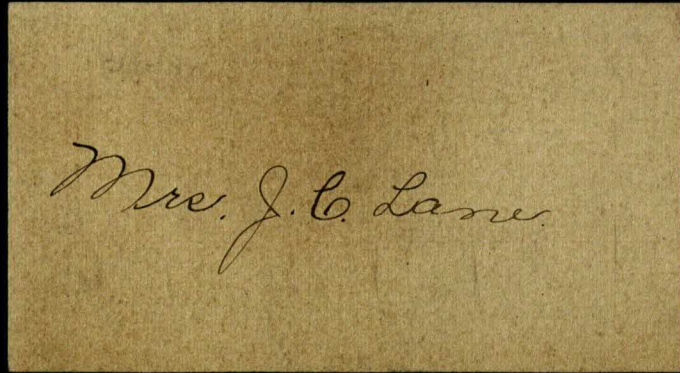 Mrs. J. C. Lane.